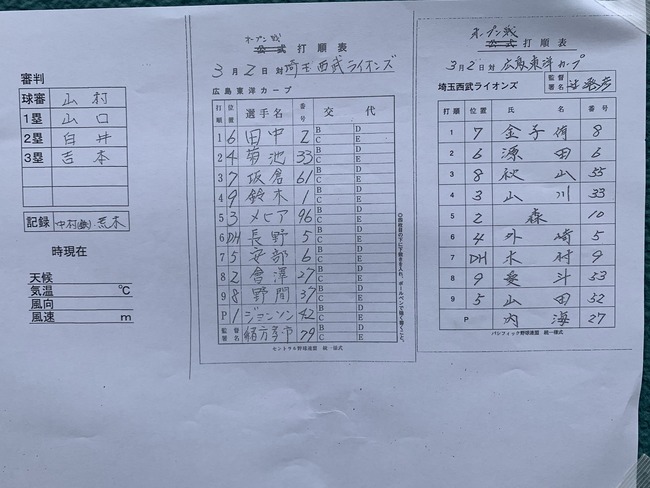 審判
球審 山村
1塁 山口
2塁 白井
3塁 吉本
記録 中村(鉄)・荒木
時現在
天候
気温 ℃
風向
風速 m
オープン戦
公式 打順表
3月2日 対 埼玉西武ライオンズ
広島東洋カープ
打順 位置 選手名 番号 交代
1 6 田中 2 B C D E
2 4 菊池 33 B C D E
3 7 坂倉 61 B C D E
4 9 鈴木 1 B C D E
5 3 メヒア 96 B C D E
6 DH 長野 5 B C D E
7 5 安部 6 B C D E
8 2 會澤 27 B C D E
9 8 野間 37 B C D E
P 1 ジョンソン 42 B C D E
監督署名 緒方孝市 79 B C D E
セントラル野球連盟 統一様式
オープン戦
公式 打順表
3月2日 対 広島東洋カープ
埼玉西武ライオンズ 監督署名
打順 位置 氏名 番号
1 7 金子侑 8
2 6 源田 6
3 8 秋山 55
4 3 山川 33
5 2 森 10
6 4 外崎 5
7 DH 木村 9
8 9 愛斗 53
9 5 山田 52
P 内海 27
パシフィック野球連盟 統一様式